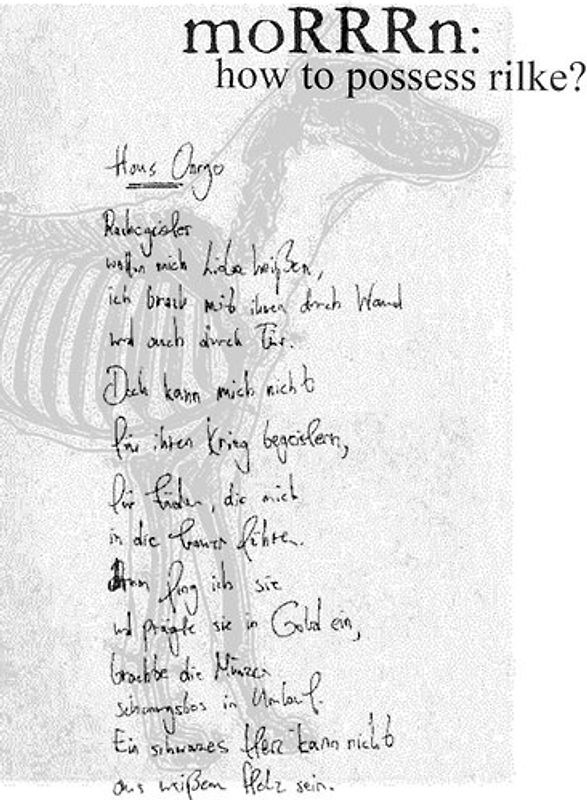 moRRRn:
how to possess rilke?
Haus
Rachegeister
wollten mich Liebe heißen,
ich brach mit ihnen durch Wand
und auch durch Tür.
Doch kann mich nicht
für ihren Krieg begeistern,
für Fäden, die mich
in die führen.
Drum fing ich sie
und prägte sie in Gold ein,
brachte die Münzen
schonungslos in Umlauf.
Ein schwarzes Herz kann nicht
aus weißem Holz sein.